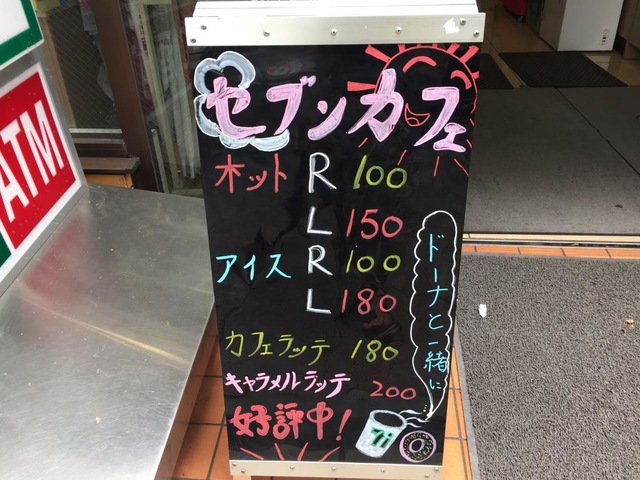 セブンカフェ
ホット R 100
L 150
アイス R 100
L 180
カフェラッテ 180
キャラメルラッテ 200
好評中!
ドーナと一緒に
7i
ATM